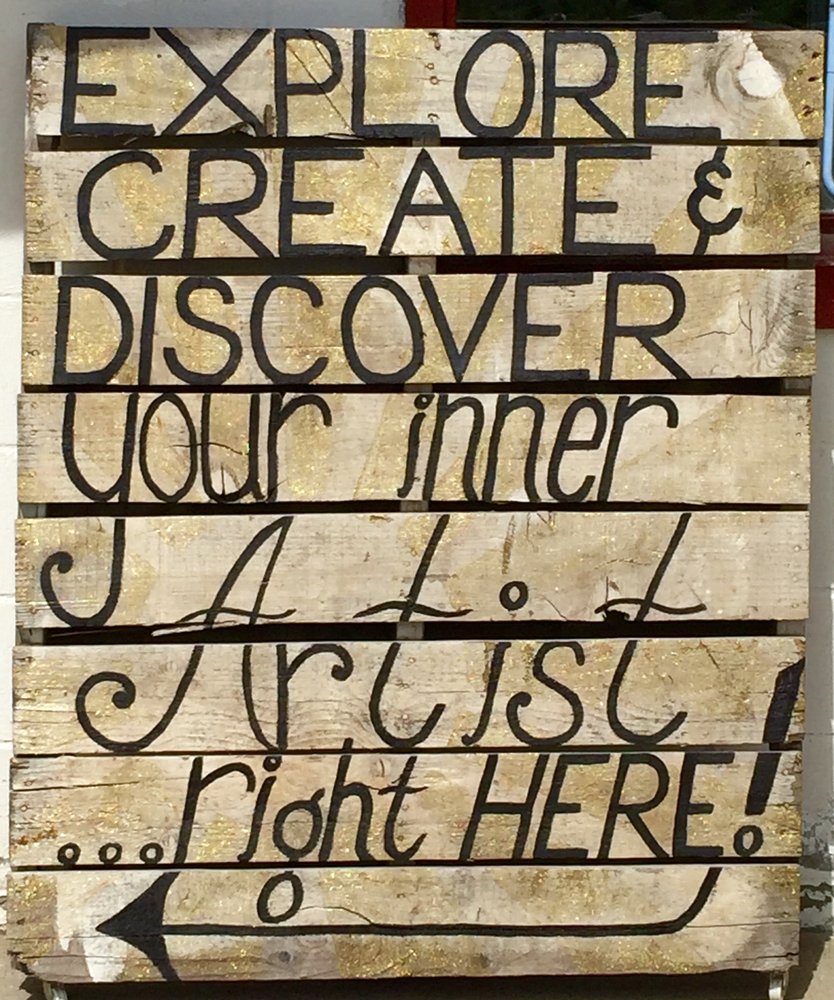 EXPLORE
CREATE &
DISCOVER
your inner
Artist
...right HERE!